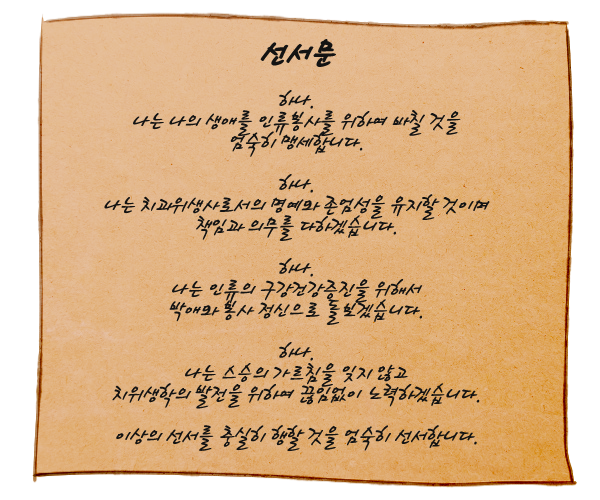 선서문
하나.
나는 나의 생애를 인류봉사를 위하여 바칠 것을
엄숙히 맹세합니다.
하나.
나는 치과위생사로서의 명예와 존엄성을 유지할 것이며
책임과 의무를 다하겠습니다.
하나.
나는 인류의 구강건강증진을 위해서
박애와 봉사 정신으로 돌보겠습니다.
하나.
나는 스승의 가르침을 잊지 않고
치위생학의 발전을 위하여 끊임없이 노력하겠습니다.
이상의 선서를 충실히 행할 것을 엄숙히 선서합니다.